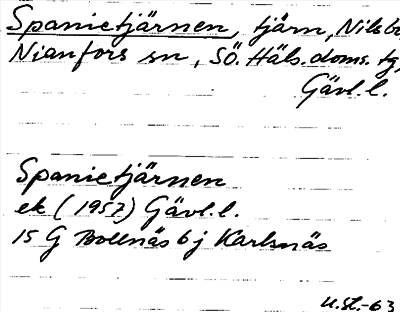 Spanietjärnen, tjärn, Nilsbo
Nianfors sn, SÖ. Häls. doms. tg,
Gävl.l.
Spanietjärnen
ek (1957) Gävl.l.
15 G Bollnäs 6 j Karlsnäs
U.St.-63